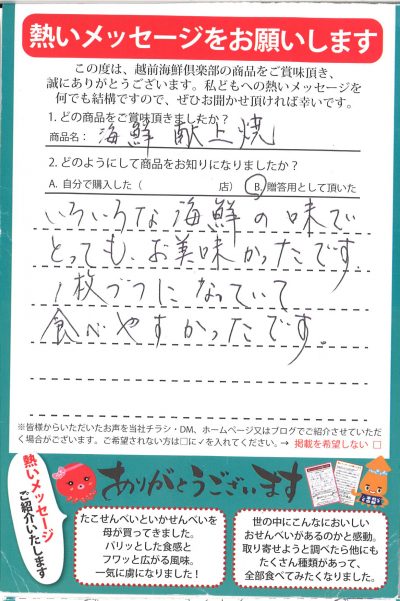 熱いメッセージをお願いします
この度は、越前海鮮倶楽部の商品をご賞味頂き、
誠にありがとうございます。私どもへの熱いメッセージを
何でも結構ですので、ぜひお聞かせ頂ければ幸いです。
1. どの商品をご賞味頂きましたか？
商品名： 海鮮献上焼
2. どのようにして商品をお知りになりましたか？
A. 自分で購入した（　　　店） B. 贈答用として頂いた
いろいろな海鮮の味で
とっても、お美味かったです。
1枚づつになっていて
食べやすかったです。
※皆様からいただいたお声を当社チラシ・DM、ホームページ又はブログでご紹介させていただ
く場合がございます。ご希望されない方は□に✓を入れてください。→ 掲載を希望しない □
熱いメッセージ
ご紹介いたします
ありがとうございます
たこせんべいといかせんべいを
母が買ってきました。
パリッとした食感と
フワッと広がる風味。
一気に虜になりました！
世の中にこんなにおいしい
おせんべいがあるのかと感動。
取り寄せようと調べたら他にも
たくさん種類があって、
全部食べてみたくなりました。